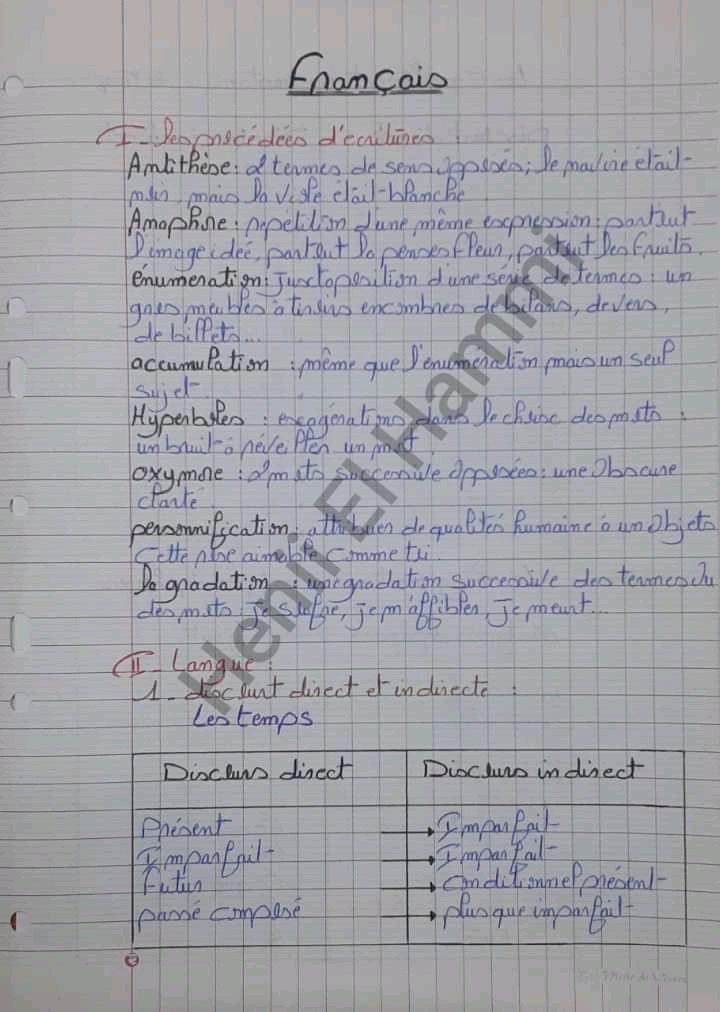 Français
I - Les procédées d'écritures :
Antithèse : 2 termes de sens opposés ; le navire était
noir, mais la voile était blanche
Anaphore : répétition d'une même expression : partout
l'image idée, partout la pensée fleur, partout les fruits.
énumeration : juxtaposition d'une série de termes : un
gros meubles à tiroirs encombres de bilans, de vers,
de billets...
accumulation : même que l'enumération mais un seul
sujet
Hyperboles : exagérations dans le choix des mots :
un bruit à réveiller un mort
oxymore : 2 mots successive opposées : une Obscure
clarté
personnification : attribuer de qualités humaine à un Objets
Cette aimable comme toi
La gradation : une gradation successive des termes ou
des mots : je sufre, je m'affibler, je meurt...
II - Langue :
1 - discourt direct et indirecte :
Les temps
Discours direct Discours indirect
Présent → Imparfait
Imparfait → Imparfait
Futur → conditionnel présent
passé composé → plus que imparfait
Henri El Hammi